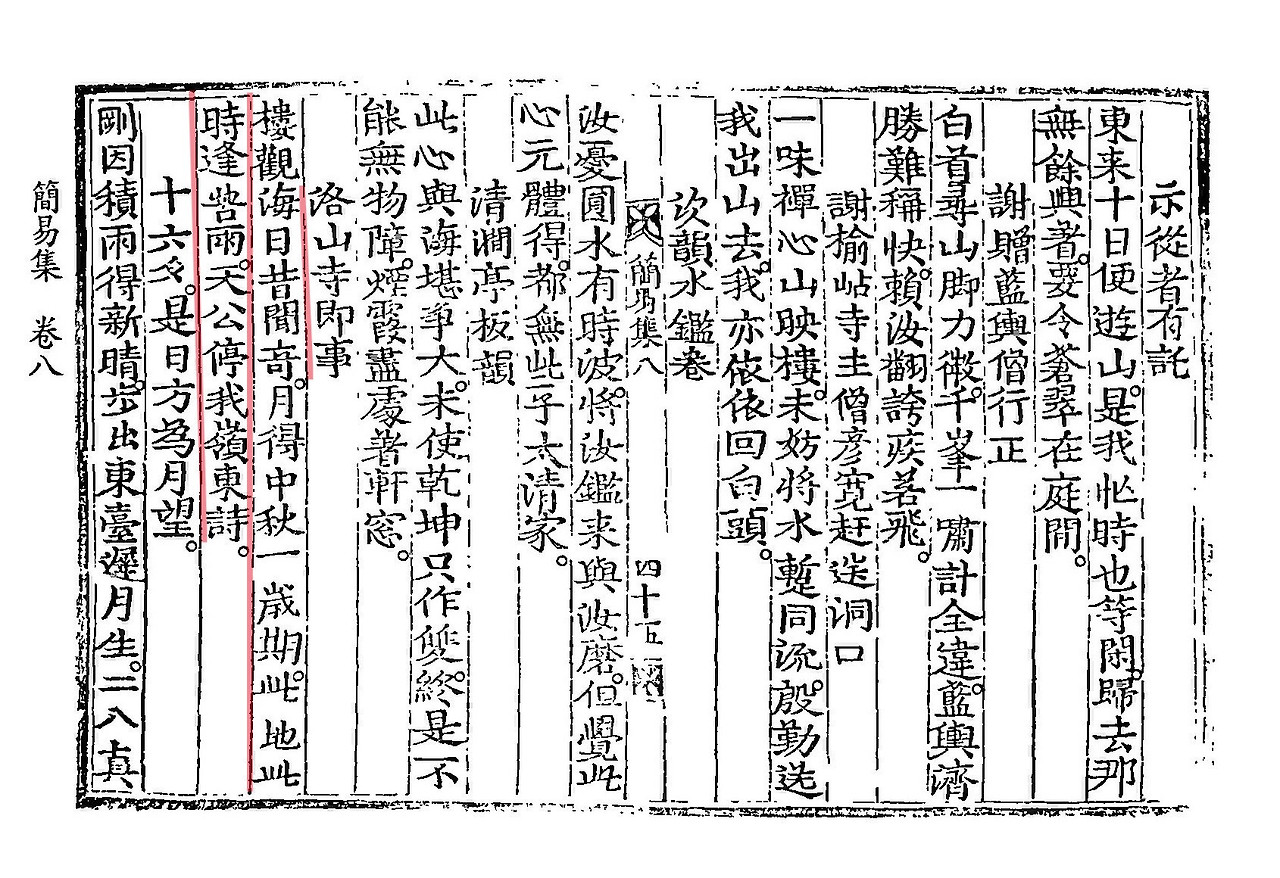 示從者有託
東来十日便遊山。是我忙時也等閑。歸去那
無餘興著。要令蒼翠在庭間。
謝贈藍輿僧行正
白首尋山脚力微。千峯一嘯計全違。藍輿濟
勝難稱快。賴汝翻誇疾若飛。
謝楡岾寺主僧彦寬赶送洞口
一味禪心山映樓。未妨將水蹔同流。殷勤送
我出山去。我亦依依回白頭。
次韻水鑑卷
簡易集八 四十五
汝憂圓水有時波。將汝鑑来與汝磨。但覺此
心元體得。都無此子太清家。
清澗亭板韻
此心與海堪爭大。未使乾坤只作雙。終是不
能無物障。煙霞盡處著軒窓。
洛山寺即事
樓觀海日昔聞奇。月得中秋一歲期。此地此
時逢苦雨。天公停我嶺東詩。
十六夕。是日方為月望。
剛因積雨得新晴。步出東臺遲月生。二八真
簡易集 卷八